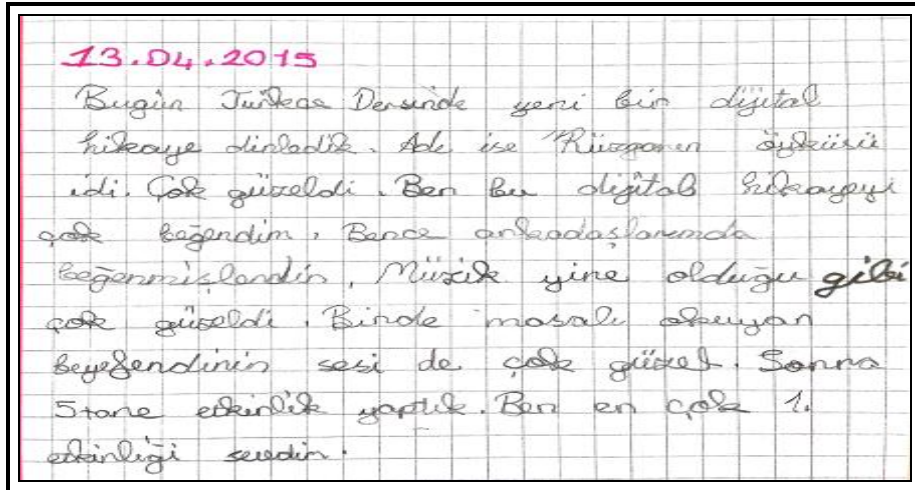 13.04.2015
Bugün Türkçe Dersinde yeni bir dijital
hikaye dinledik. Adı ise Rüzgarın öyküsü
idi. Çok güzeldi. Ben bu dijital hikayeyi
çok beğendim. Bence arkadaşlarımda
beğenmişlerdir. Müzik yine olduğu gibi
çok güzeldi. Birde masalı okuyan
beyefendinin sesi de çok güzel. Sonra
5 tane etkinlik yaptık. Ben en çok 1.
etkinliği sevdim.